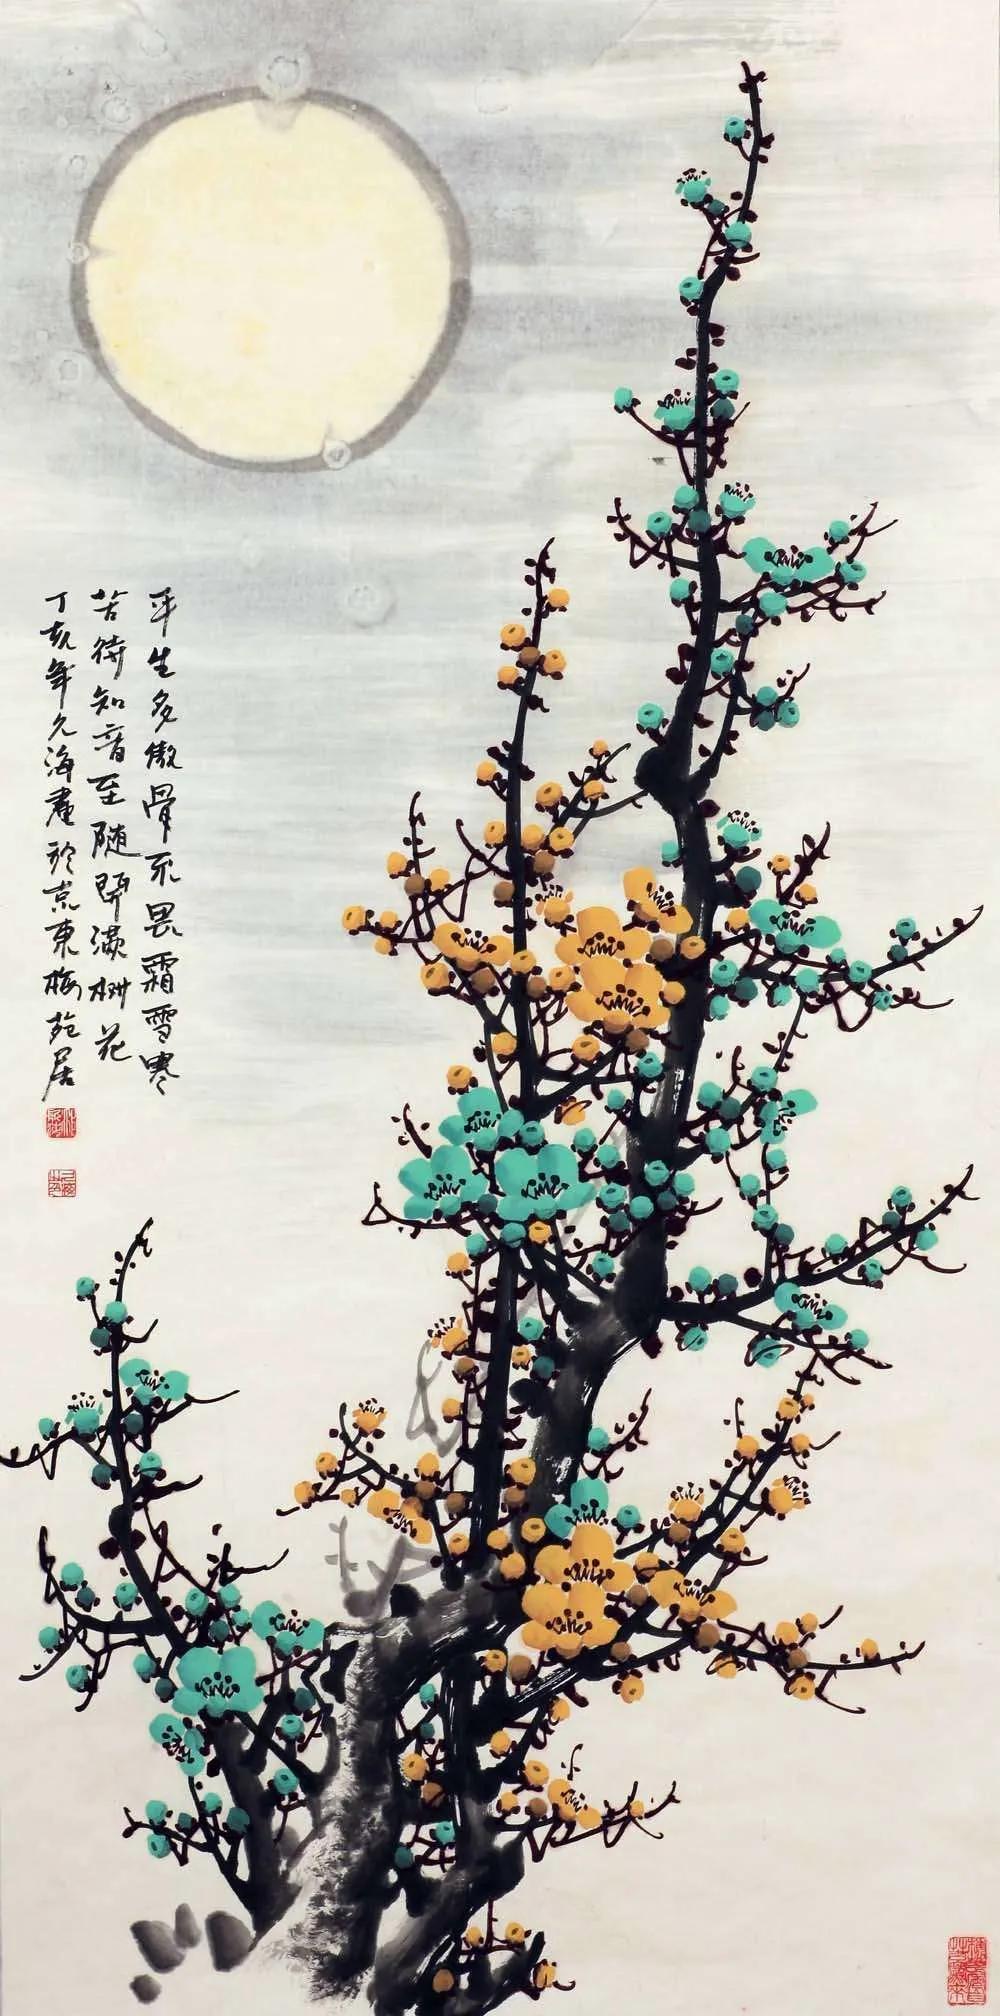 平生多傲骨不畏霜雪寒
苦待知音至随開满树花
丁亥年久海畫於京東梅苑居